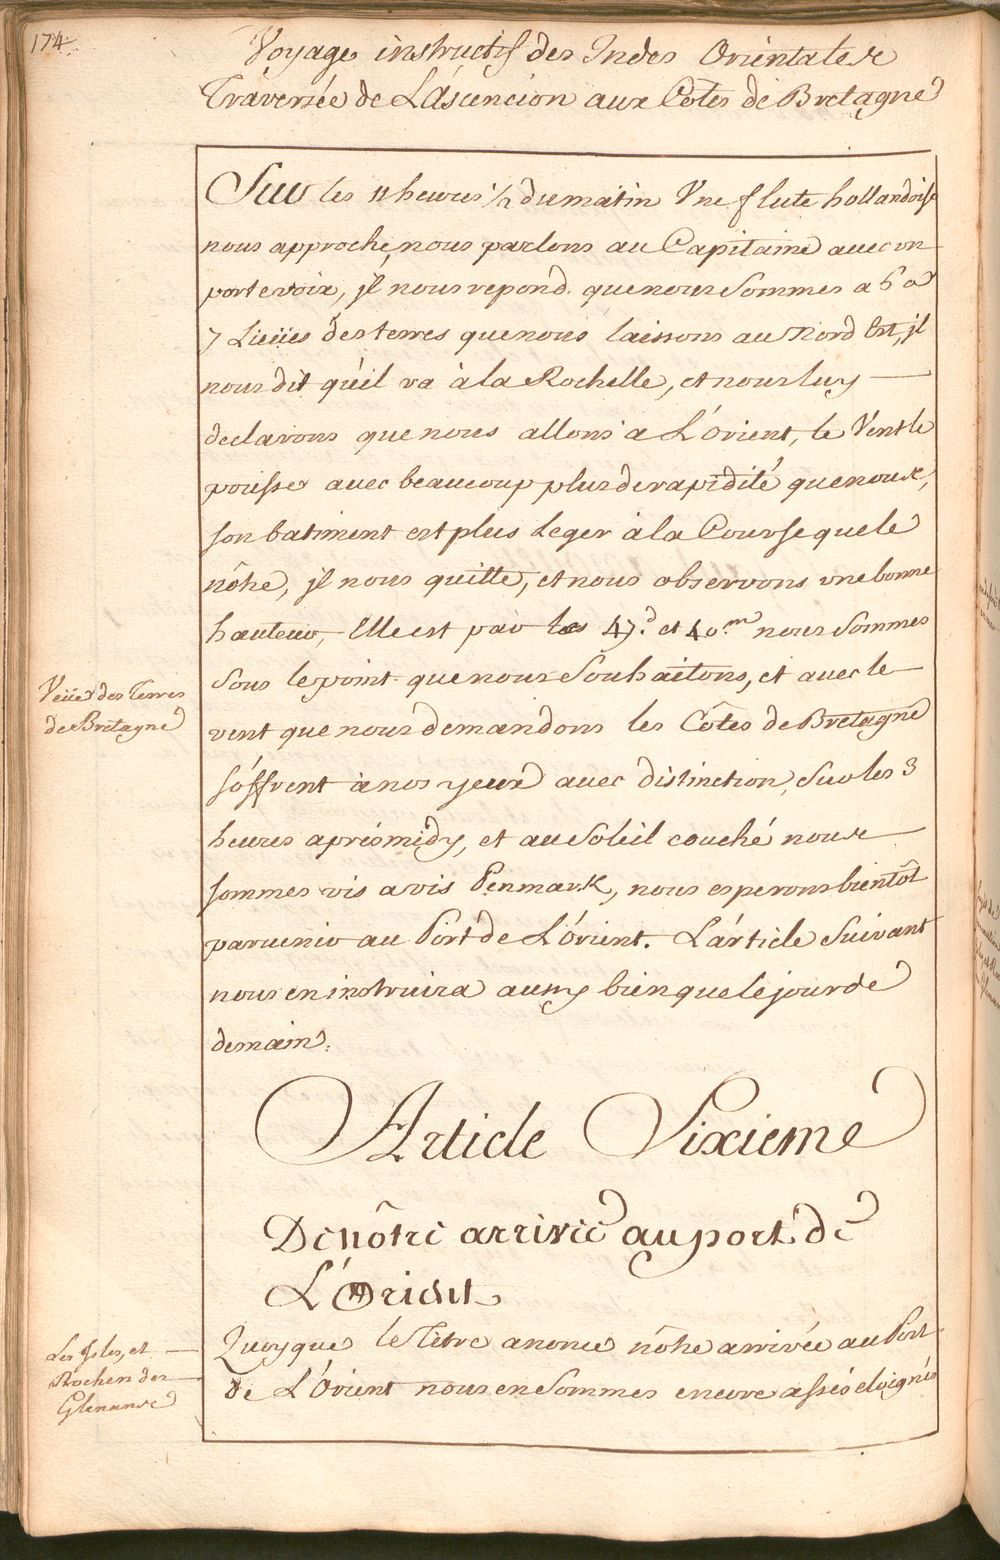 174
Voyage instructif des Indes Orientales
Traversée de L'Ascencion aux Côtes de Bretagne
Sur les 11 heures 1/2 du matin Vne flute hollandoise
nous approche, nous parlons au Capitaine avec vn
porte voix, jl nous repond que nous Sommes a 6 a
7 Lieües des terres que nous laissons au Nord Est, jl
nous dit qu'il va à la Rochelle, et nous luy
declarons que nous allons a L'Orient, le Vent le
pousse avec beaucoup plus de rapidité que nous,
son batiment est plus Leger à la Course que le
nôtre, jl nous quitte, et nous observons vne bonne
hauteur, Elle est par les 47.d et 40.m nous Sommes
Sous le point que nous Souhaitons, et avec le
Veüe des Terres
de Bretagne
vent que nous demandons les Côtes de Bretagne
s'offrent à nos yeux avec distinction, Sur les 3
heures aprés midy, et au Soleil couché nous
sommes vis a vis Penmark, nous esperons bientôt
parvenir au Port de L'Orient. L'article Suivant
nous en instruira aussy bien que le jour de
demain.
Article Sixieme
De nôtre arrivée au port de
L'Orient
Quoyque le Titre anonce nôtre arrivée au Port
de L'Orient nous en Sommes encore assés eloignés
Les Isles, et
Rochers des
Glenans